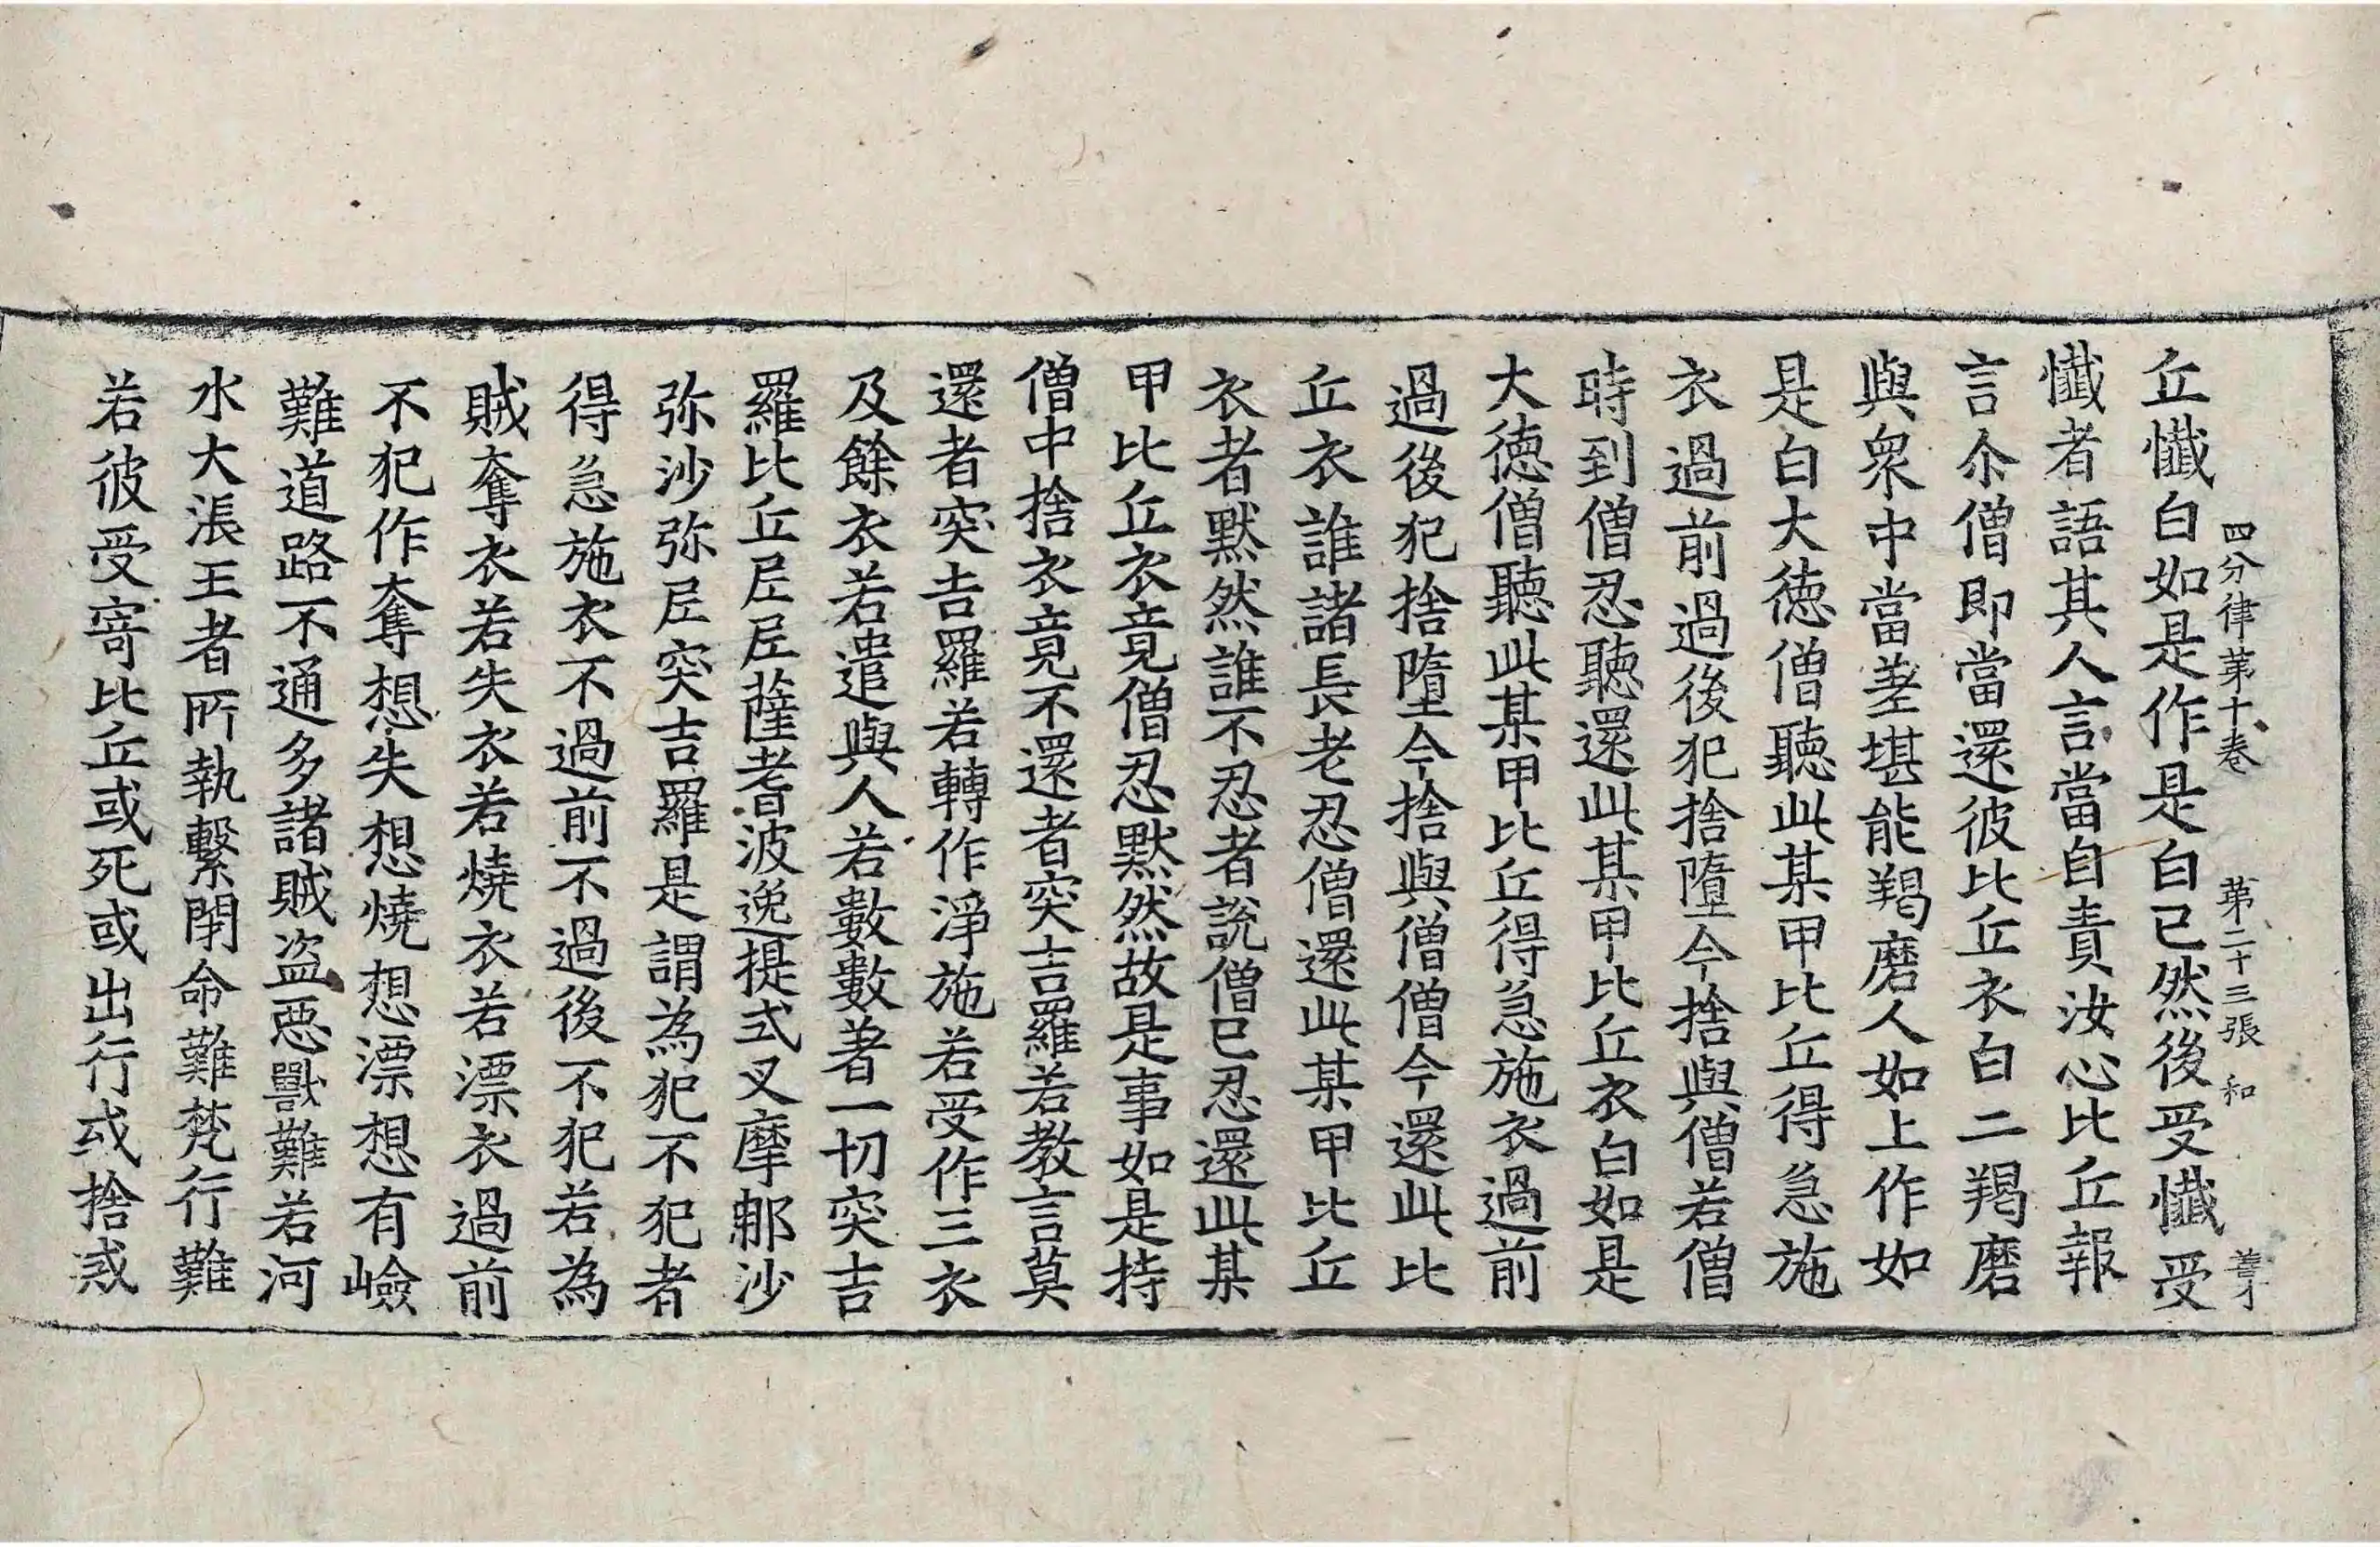 四分律苐十卷 苐二十三張 和 善才
丘懺白如是作是白已然後受懺受
懺者語其人言當自責汝心比丘報
言尒僧即當還彼比丘衣白二羯磨
與衆中當差堪能羯磨人如上作如
是白大徳僧聽此某甲比丘得急施
衣過前過後犯捨墮今捨與僧若僧
時到僧忍聽還此某甲比丘衣白如是
大徳僧聽此某甲比丘得急施衣過前
過後犯捨墮今捨與僧僧今還此比
丘衣誰諸長老忍僧還此某甲比丘
衣者默然誰不忍者說僧已忍還此某
甲比丘衣竟僧忍默然故是事如是持
僧中捨衣竟不還者突吉羅若教言莫
還者突吉羅若轉作淨施若受作三衣
及餘衣若遣與人若數數著一切突吉
羅比丘𡰱𡰱薩耆波逸提式叉摩那沙
弥沙弥𡰱突吉羅是謂為犯不犯者
得急施衣不過前不過後不犯若為
賊奪衣若失衣若燒衣若漂衣過前
不犯作奪想失想燒想漂想有嶮
難道路不通多諸賊盜惡獸難若河
水大漲王者所執繫閇命難梵行難
若彼受寄比丘或死或出行或捨或